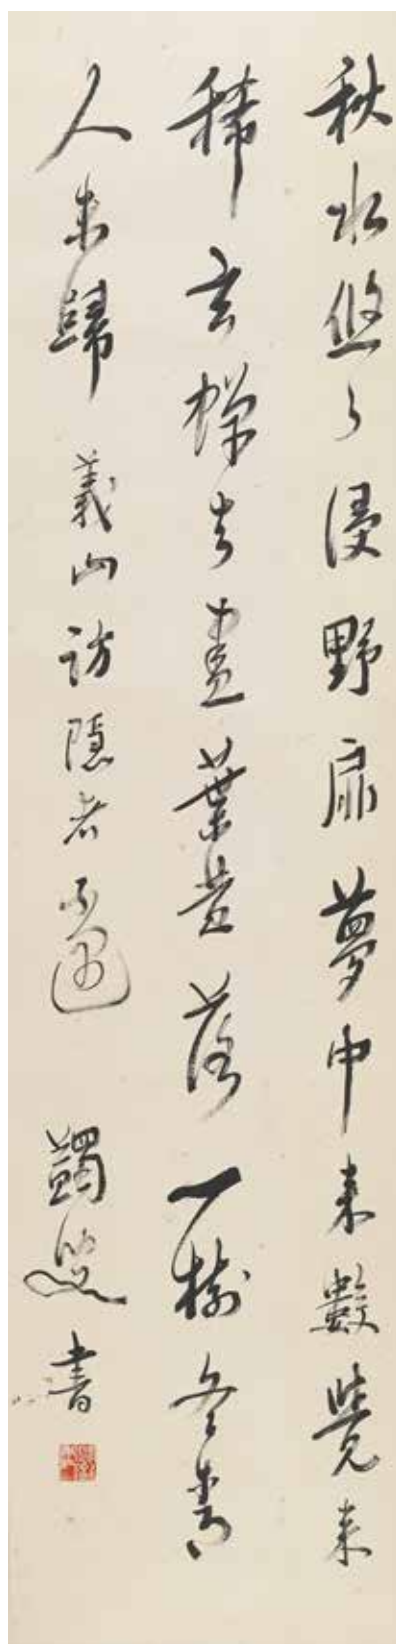 秋水悠々浸野扉夢中来數覺来
稀玄蟬去盡葉黄落一樹冬青
人未歸 義山訪隱者不遇 蠲叟書